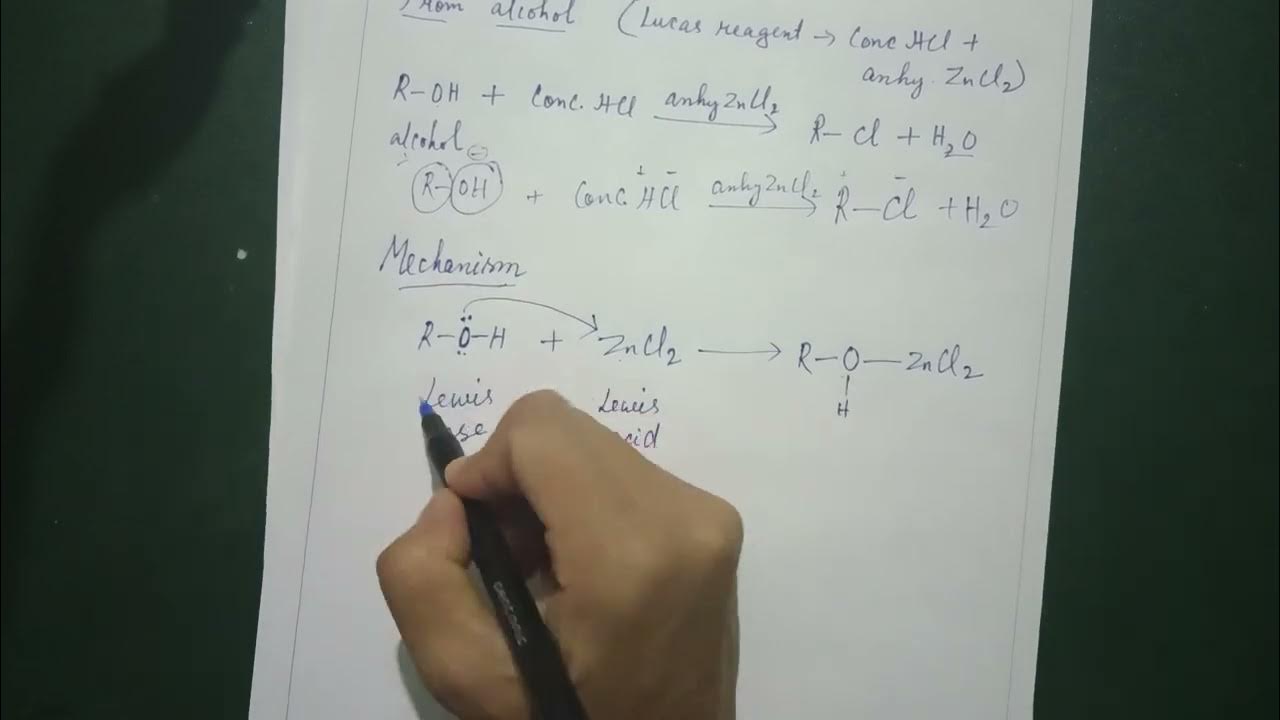 From alcohol (Lucas reagent → Conc HCl +
anhy. ZnCl₂)
R-OH + Conc. HCl anhy ZnCl₂ → R-Cl + H₂O
alcohol
R-OH⊖ + Conc. H⁺Cl⁻ anhy ZnCl₂ → R⁺-Cl⁻ + H₂O
Mechanism
R-O-H + ZnCl₂ → R-O-ZnCl₂
H
Lewis Lewis